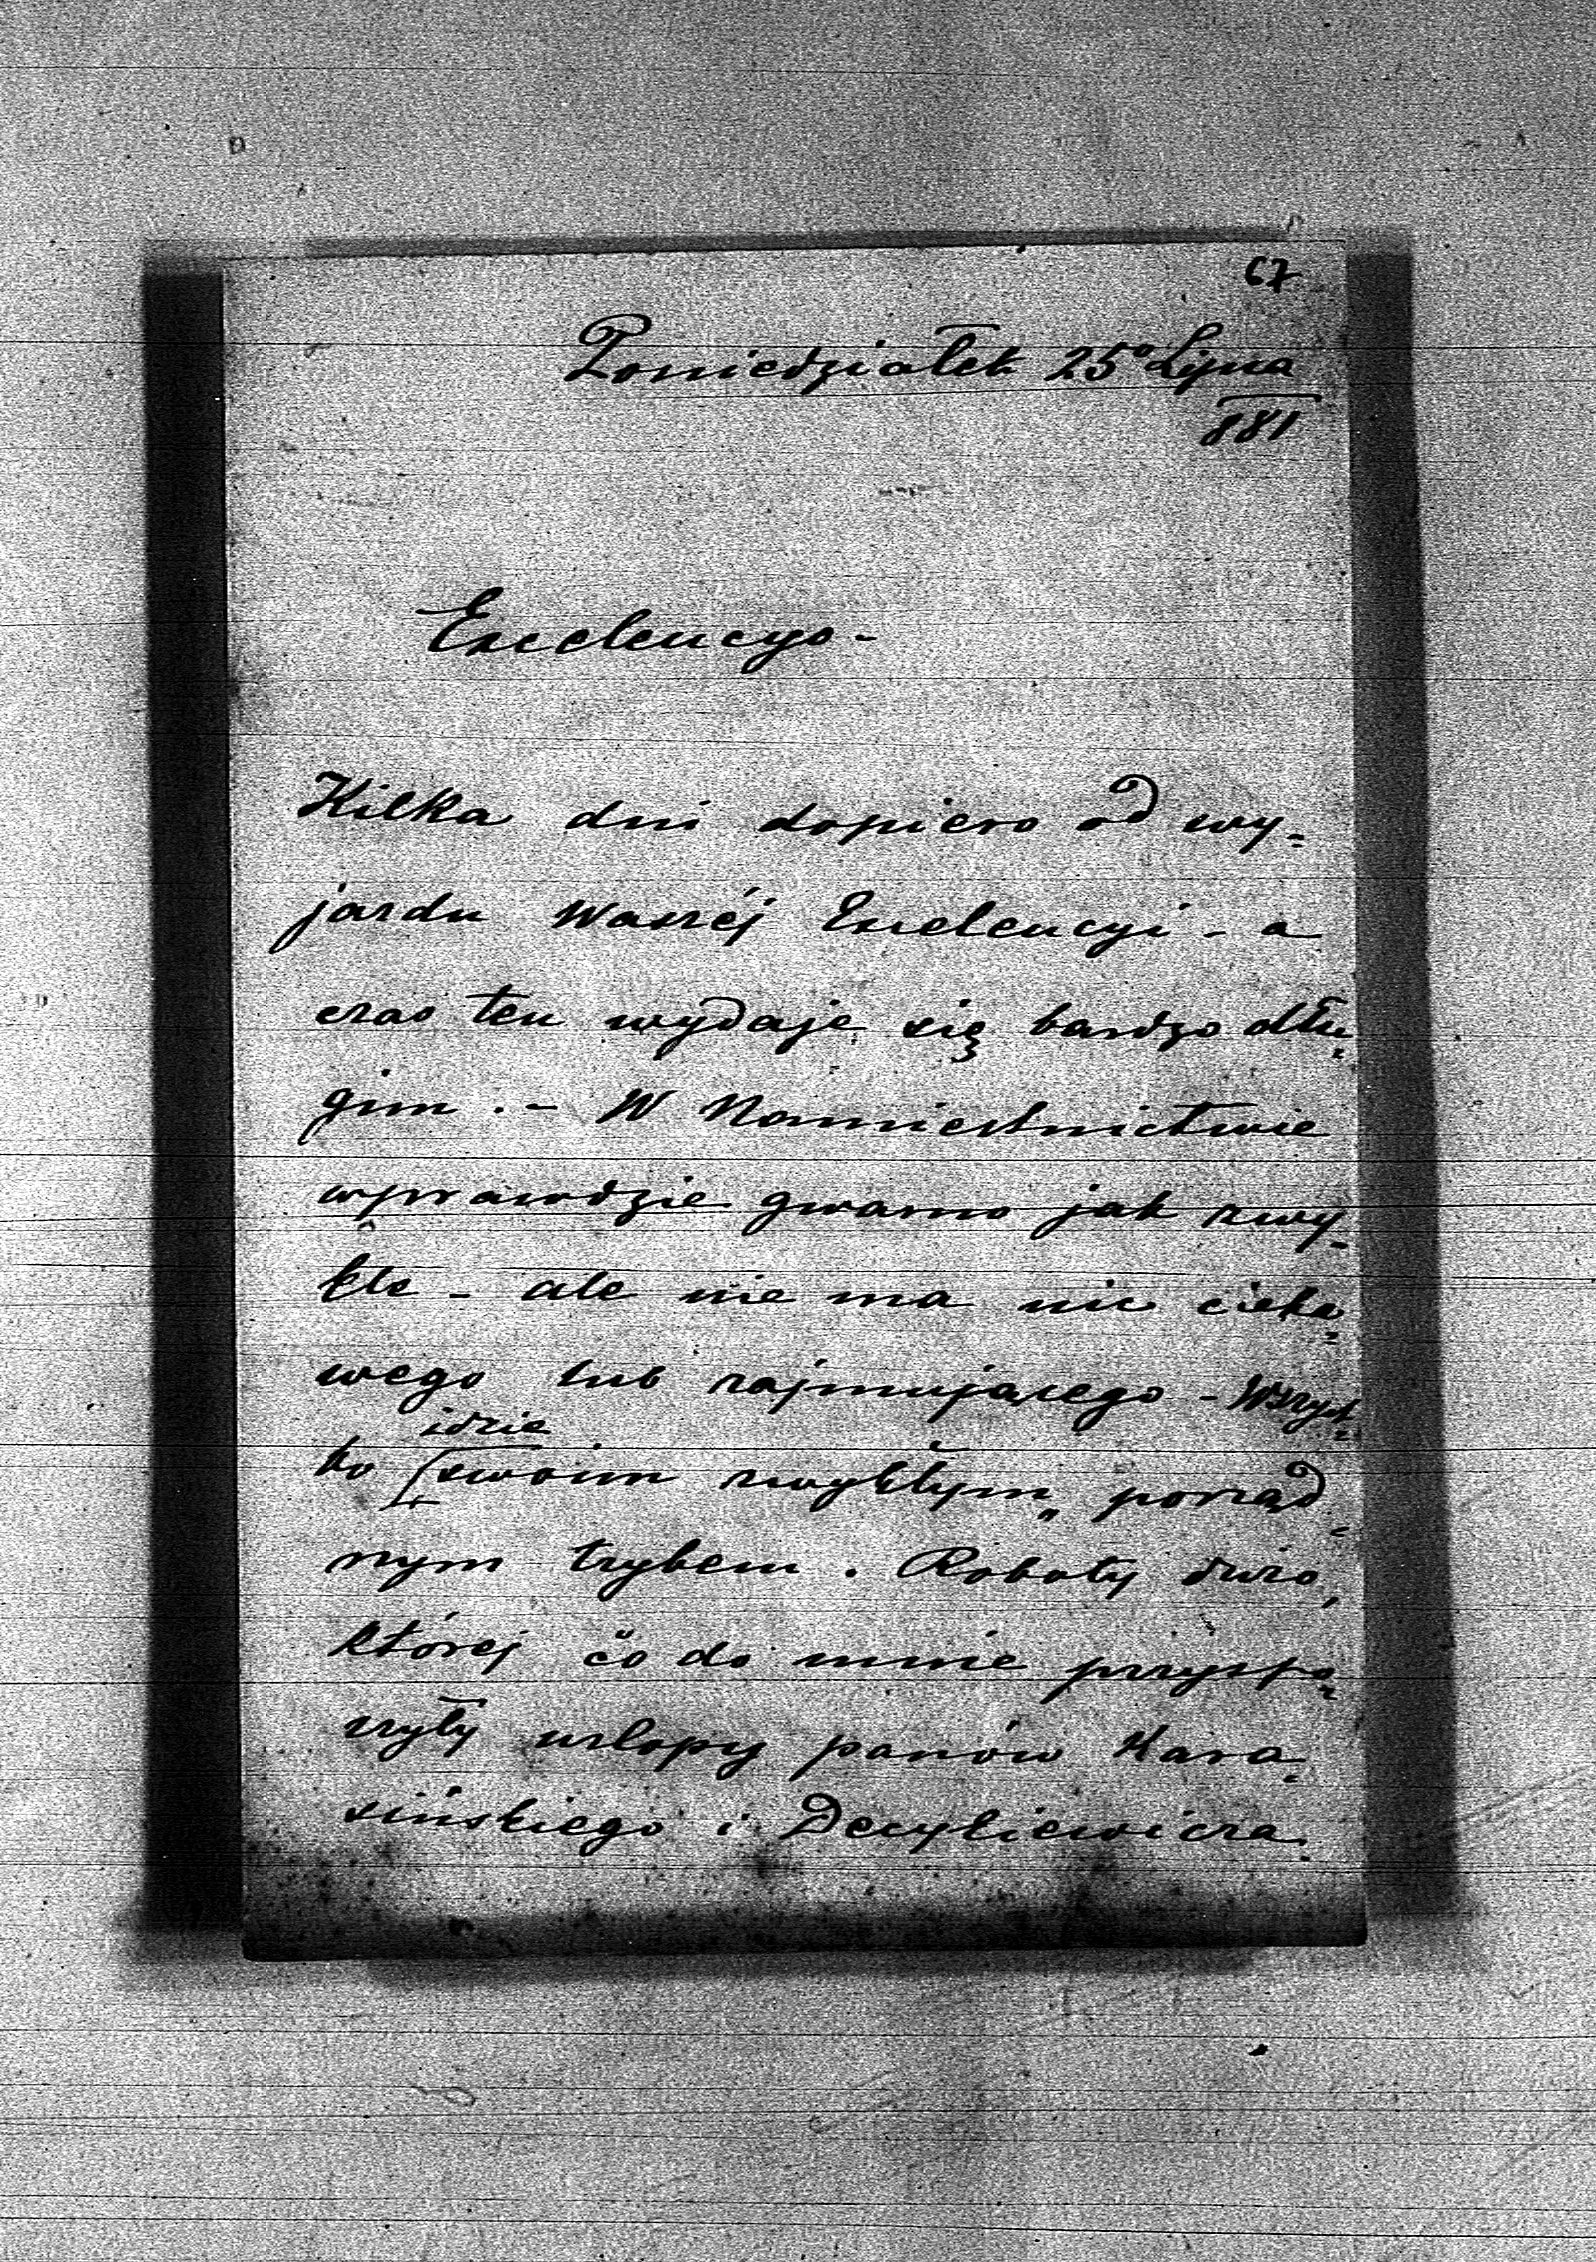 67
Poniedziałek 25º Lipca
881
Excelencyo -
Kilka dni dopiero od wy=
jazdu Waszéj Excelencyi - a
czas ten wydaje się bardzo dłu=
gim . - W Namiestnictwie
wprawdzie gwarno jak zwy=
kle - ale nie ma nic cieka=
wego lub zajmującego - Wszyst=
idzie
ko swoim zwykłym, porząd=
nym trybem . Roboty dużo,
której co do mnie przyspa=
rzyły urlopy panów Kara=
sińskiego i Decykiewicza.